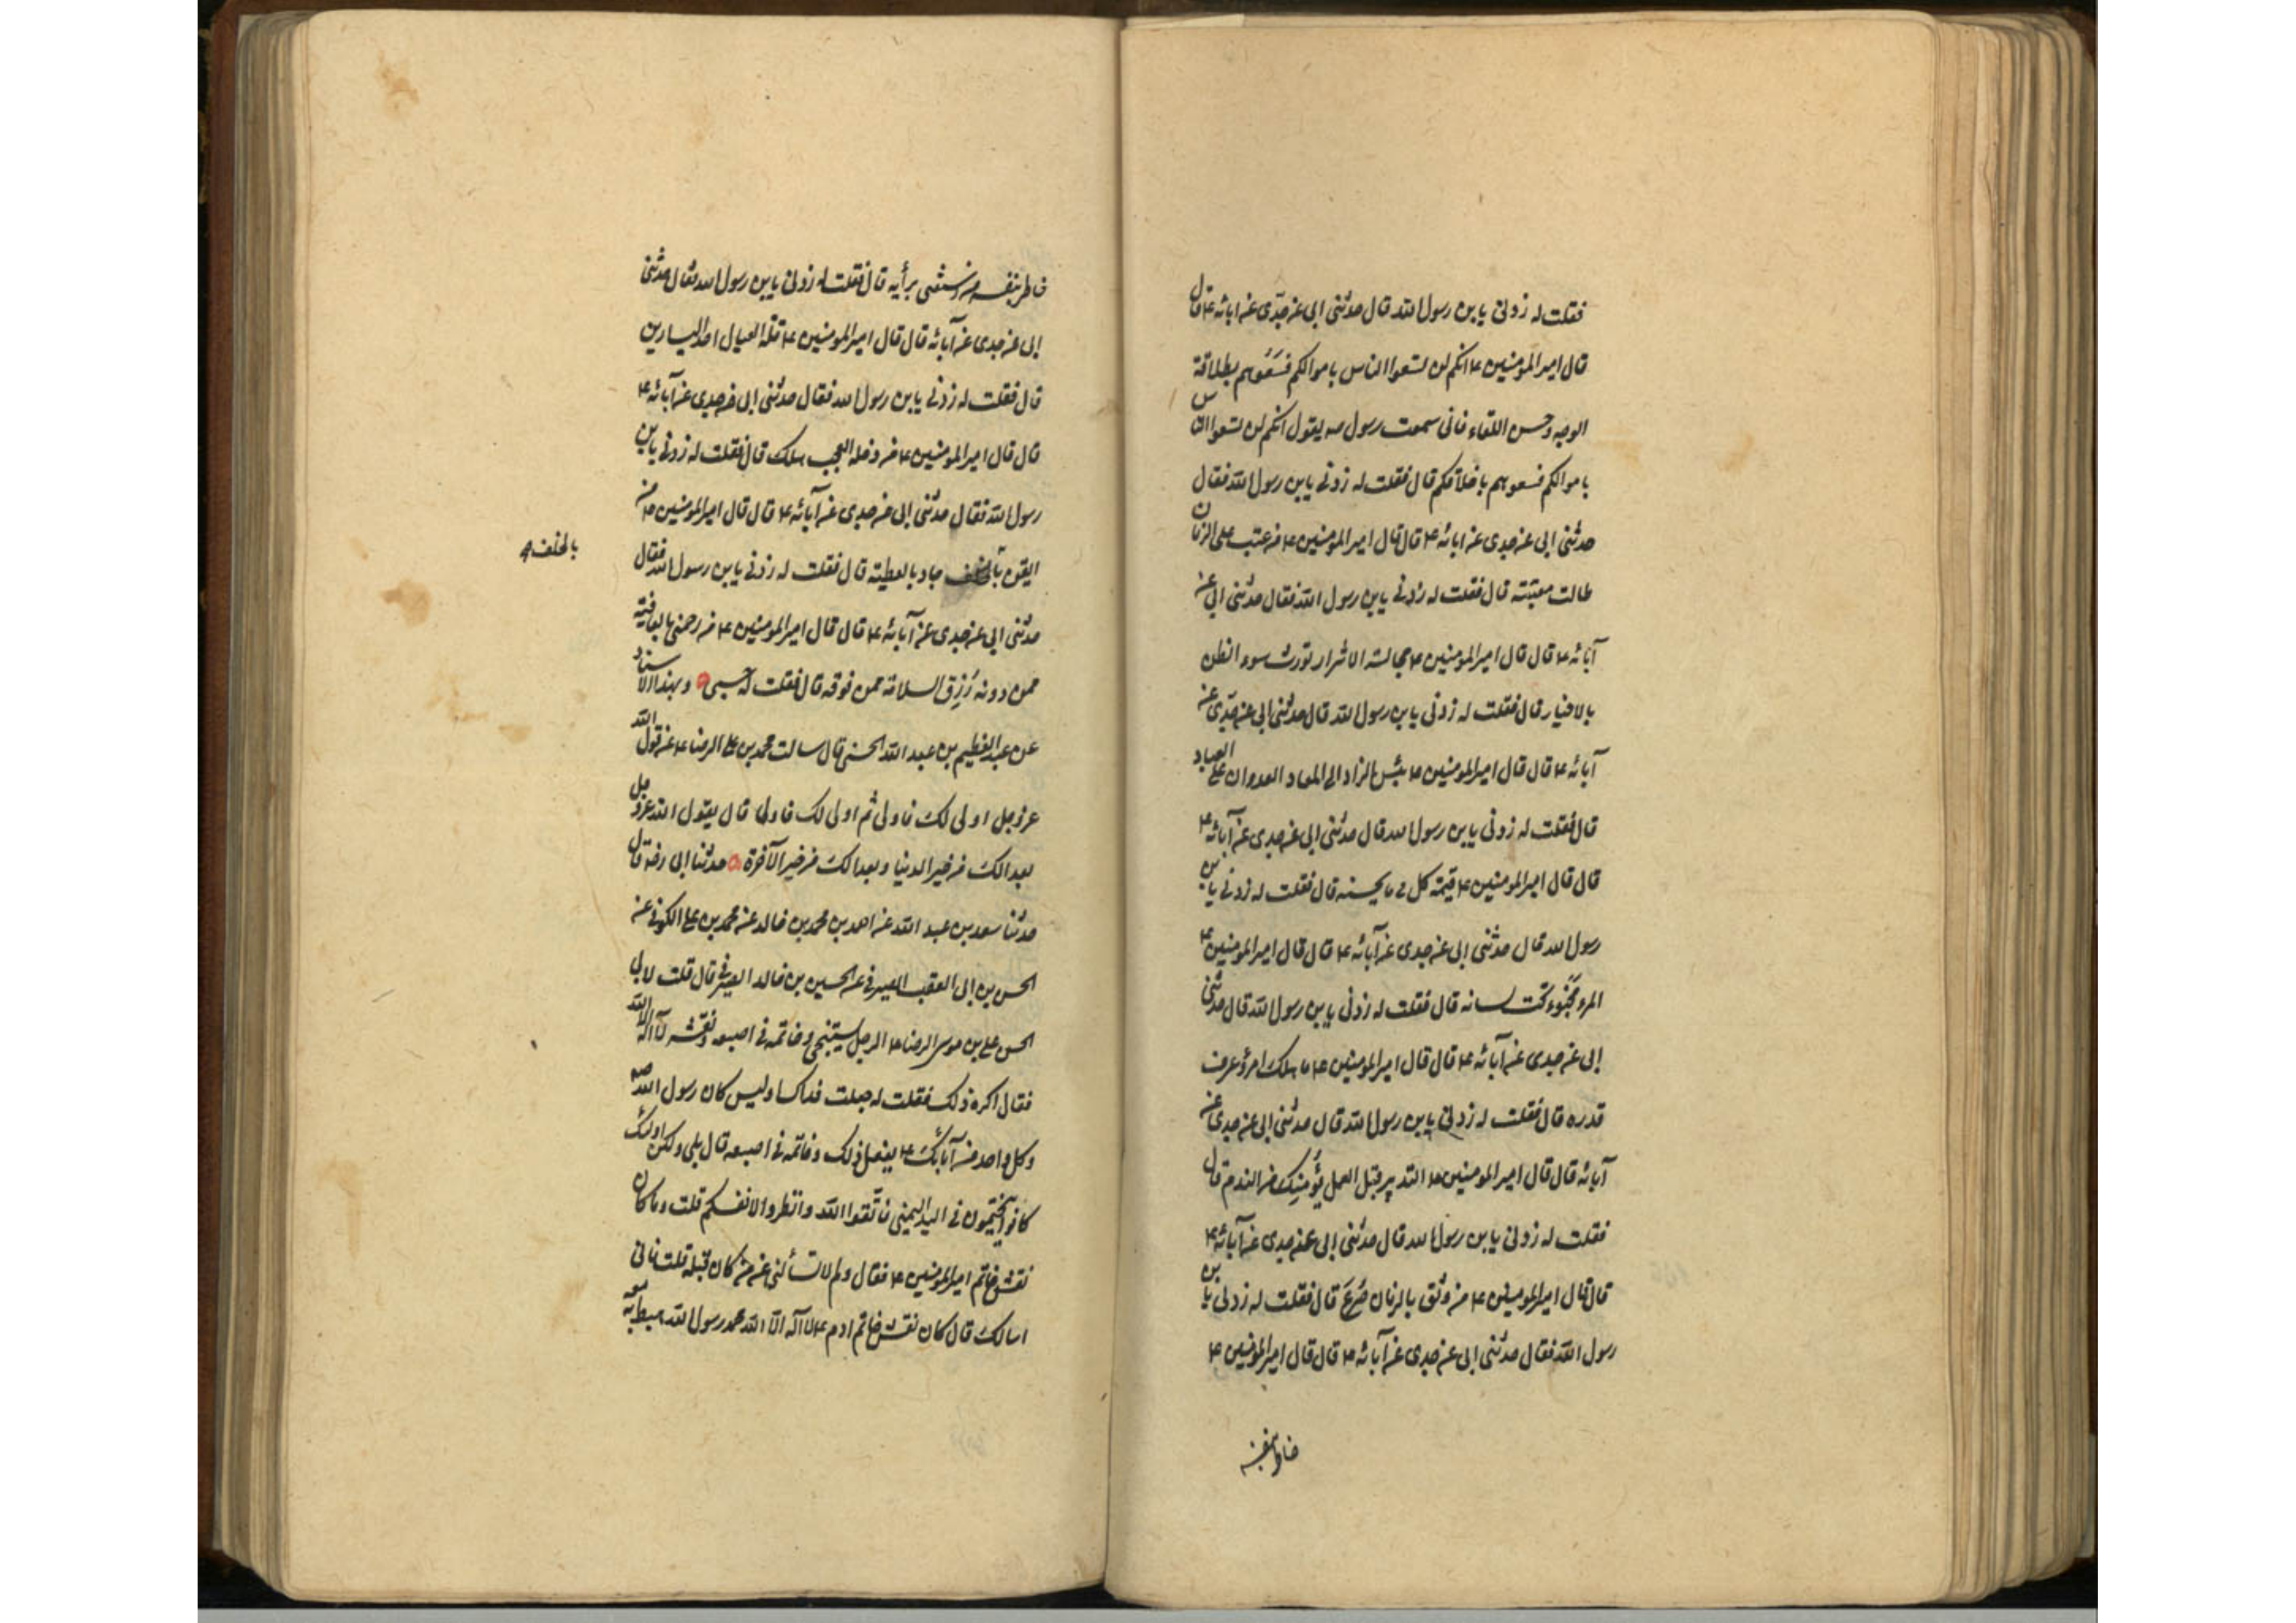 فقلت له زدنى يا بن رسول الله قال حدثنى ابى عن جدّى عن ابائه ع قال
قال امير المؤمنين ع انكم لن تسعوا الناس باموالكم فسَعُوهم بطلاقة
الوجه وحسن اللقاء فانى سمعت رسول ص يقول انكم لن تسعوا الناس
باموالكم فسعوهم باخلاقكم قال فقلت له زدنى يا بن رسول الله فقال
حدثنى ابى عن جدى عن ابائه ع قال قال امير المؤمنين ع من عتب على الزمان
طالت معتبته قال فقلت له زدنى يا بن رسول الله فقال حدثنى ابى عن
آبائه ع قال قال امير المؤمنين ع مجالسة الاشرار تورث سوء الظن
بالاخيار قال فقلت له زدنى يا بن رسول الله قال حدثنى ابى عن جدّى عن
آبائه ع قال قال امير المؤمنين ع بئس الزاد الى المعاد العدوان على العباد
قال فقلت له زدنى يا بن رسول الله قال حدثنى ابى عن جدى عن آبائه ع
قال قال امير المؤمنين ع قيمة كل ما يحسنه قال فقلت له زدنى يا بن
رسول الله قال حدثنى ابى عن جدى عن آبائه ع قال قال امير المؤمنين ع
المرء مخبوء تحت لسانه قال فقلت له زدنى يا بن رسول الله قال حدثنى
ابى عن جدى عن آبائه ع قال قال امير المؤمنين ع ما هلك امرؤ عرف
قدره قال فقلت له زدنى يا بن رسول الله قال حدثنى ابى عن جدى عن
آبائه قال قال امير المؤمنين ع التدبير قبل العمل يؤمنك من الندم قال
فقلت له زدنى يا بن رسول الله قال حدثنى ابى عن جدى عن آبائه ع
قال قال امير المؤمنين ع من وثق بالزمان صُرِعَ قال فقلت له زدنى يا بن
رسول الله فقال حدثنى ابى عن جدى عن آبائه ع قال قال امير المؤمنين ع
خاطر بنفسه من استغنى برأيه قال فقلت له زدنى يا بن رسول الله فقال حدثنى
ابى عن جدى عن آبائه قال قال امير المؤمنين ع قلة العيال احد اليسارين
قال فقلت له زدنى يا بن رسول الله فقال حدثنى ابى عن جدى عن آبائه ع
قال قال امير المؤمنين ع من دخله العجب هلك قال فقلت له زدنى يا بن
رسول الله فقال حدثنى ابى عن جدى عن آبائه ع قال قال امير المؤمنين ع من
ايقن بالخلف جاد بالعطية قال فقلت له زدنى يا بن رسول الله فقال
بالخلف
حدثنى ابى عن جدى عن آبائه ع قال قال امير المؤمنين ع من رضى بالعافية
ممن دونه رُزِق السلامة ممن فوقه قال فقلت له حسبى وبهذا الاسناد
عن عبد العظيم بن عبد الله الحسنى قال سالت محمد بن على الرضا ع عن قول الله
عز وجل اولى لك فاولى ثم اولى لك فاولى قال يقول الله عز وجل
بعدا لك من خير الدنيا وبعدا لك من خير الآخرة حدثنا ابى رضه قال
حدثنا سعد بن عبد الله عن احمد بن محمد بن خالد عن محمد بن على الكوفى عن
الحسن بن ابى العقب الصيرفى عن الحسين بن خالد الصيرفى قال قلت لابى
الحسن على بن موسى الرضا ع الرجل يستنجى وخاتمه فى اصبعه ونقشه لا اله الا الله
فقال اكره ذلك فقلت له جعلت فداك اوليس كان رسول الله ص
وكل واحد من آبائك ع يفعل ذلك وخاتمه فى اصبعه قال بلى ولكن اولئك
كانوا يختمون فى اليد اليمنى فاتّقوا الله وانظروا لانفسكم قلت وما كان
نقش خاتم امير المؤمنين ع فقال ولم لا تسألنى عن من كان قبله قلت فانى
اسالك قال كان نقش خاتم ادم ع لا اله الا الله محمد رسول الله هبط به